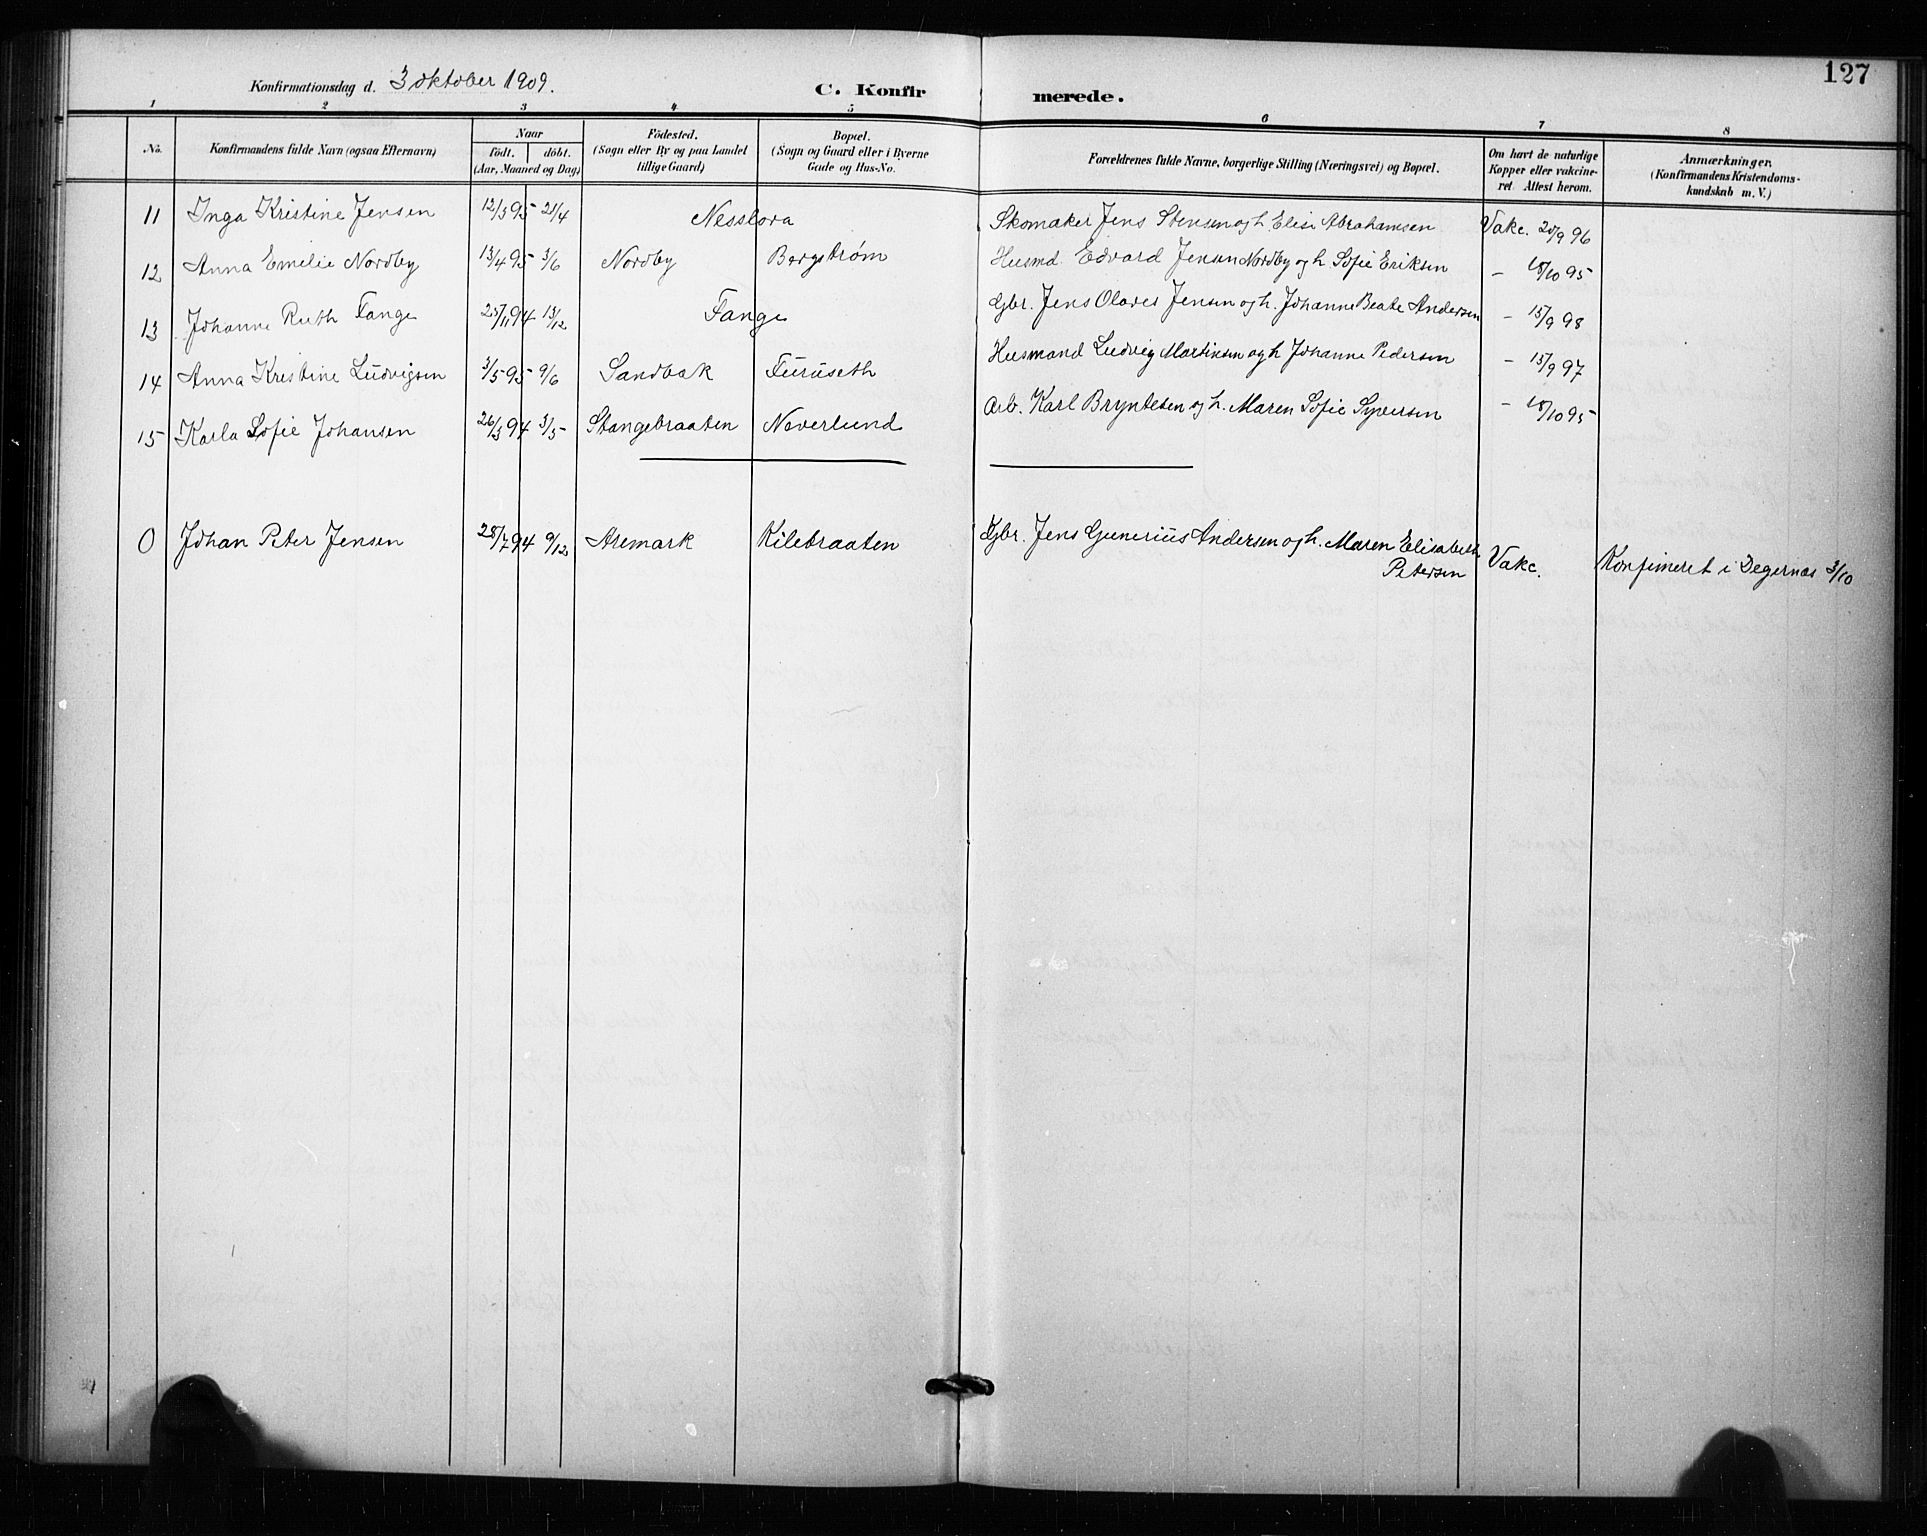 127
Konfirmationsdag d. 3 oktober 1909.
C. Konfirmerede.
1 2 3 4 5 6 7 8
No.
Konfirmandens fulde Navn (ogsaa Efternavn)
Naar
födt. döbt.
(Aar, Maaned og Dag)
Födested.
(Sogn eller By og paa Landet
tillige Gaard)
Bopæl.
(Sogn og Gaard eller i Byerne
Gade og Hus-No.
Forældrenes fulde Navne, borgerlige Stilling (Næringsvei) og Bopæl.
Om havt de naturlige
Kopper eller vakcine-
ret. Attest herom.
Anmærkninger.
(Konfirmandens Kristendoms-
kundskab m. V.)
11 Inga Kristine Jensen 12/5 95 21/4 Nesslora Skomaker Jens Stensen og h. Elise Abrahamsen Vakc. 20/9 96
12 Anna Emilie Nordby 13/4 95 3/6 Nordby Bergstrøm Husmd. Edvard Jensen Nordby og h. Sofie Eriksen – 18/10 95
13 Johanne Ruth Fange 25/11 94 13/12 Fange Gbr. Jens Olaves Jensen og h. Johanne Beate Andersen – 15/9 98
14 Anna Kristine Ludvigsen 3/5 95 9/6 Sandbæk Furuseth Husmand Ludvig Martinsen og h Johanne Pedersen – 15/9 97
15 Karla Sofie Johansen 26/3 94 3/5 Stangebraaten Neverlund Arb. Karl Bryntesen og h. Maren Sofie Syversen – 18/10 95
0 Johan Peter Jensen 28/7 94 9/12 Aremark Kilebraaten Gbr. Jens Gunerius Andersen og h. Maren Elisabeth
Petersen Vakc. Konfimeret i Degernæs 3/10